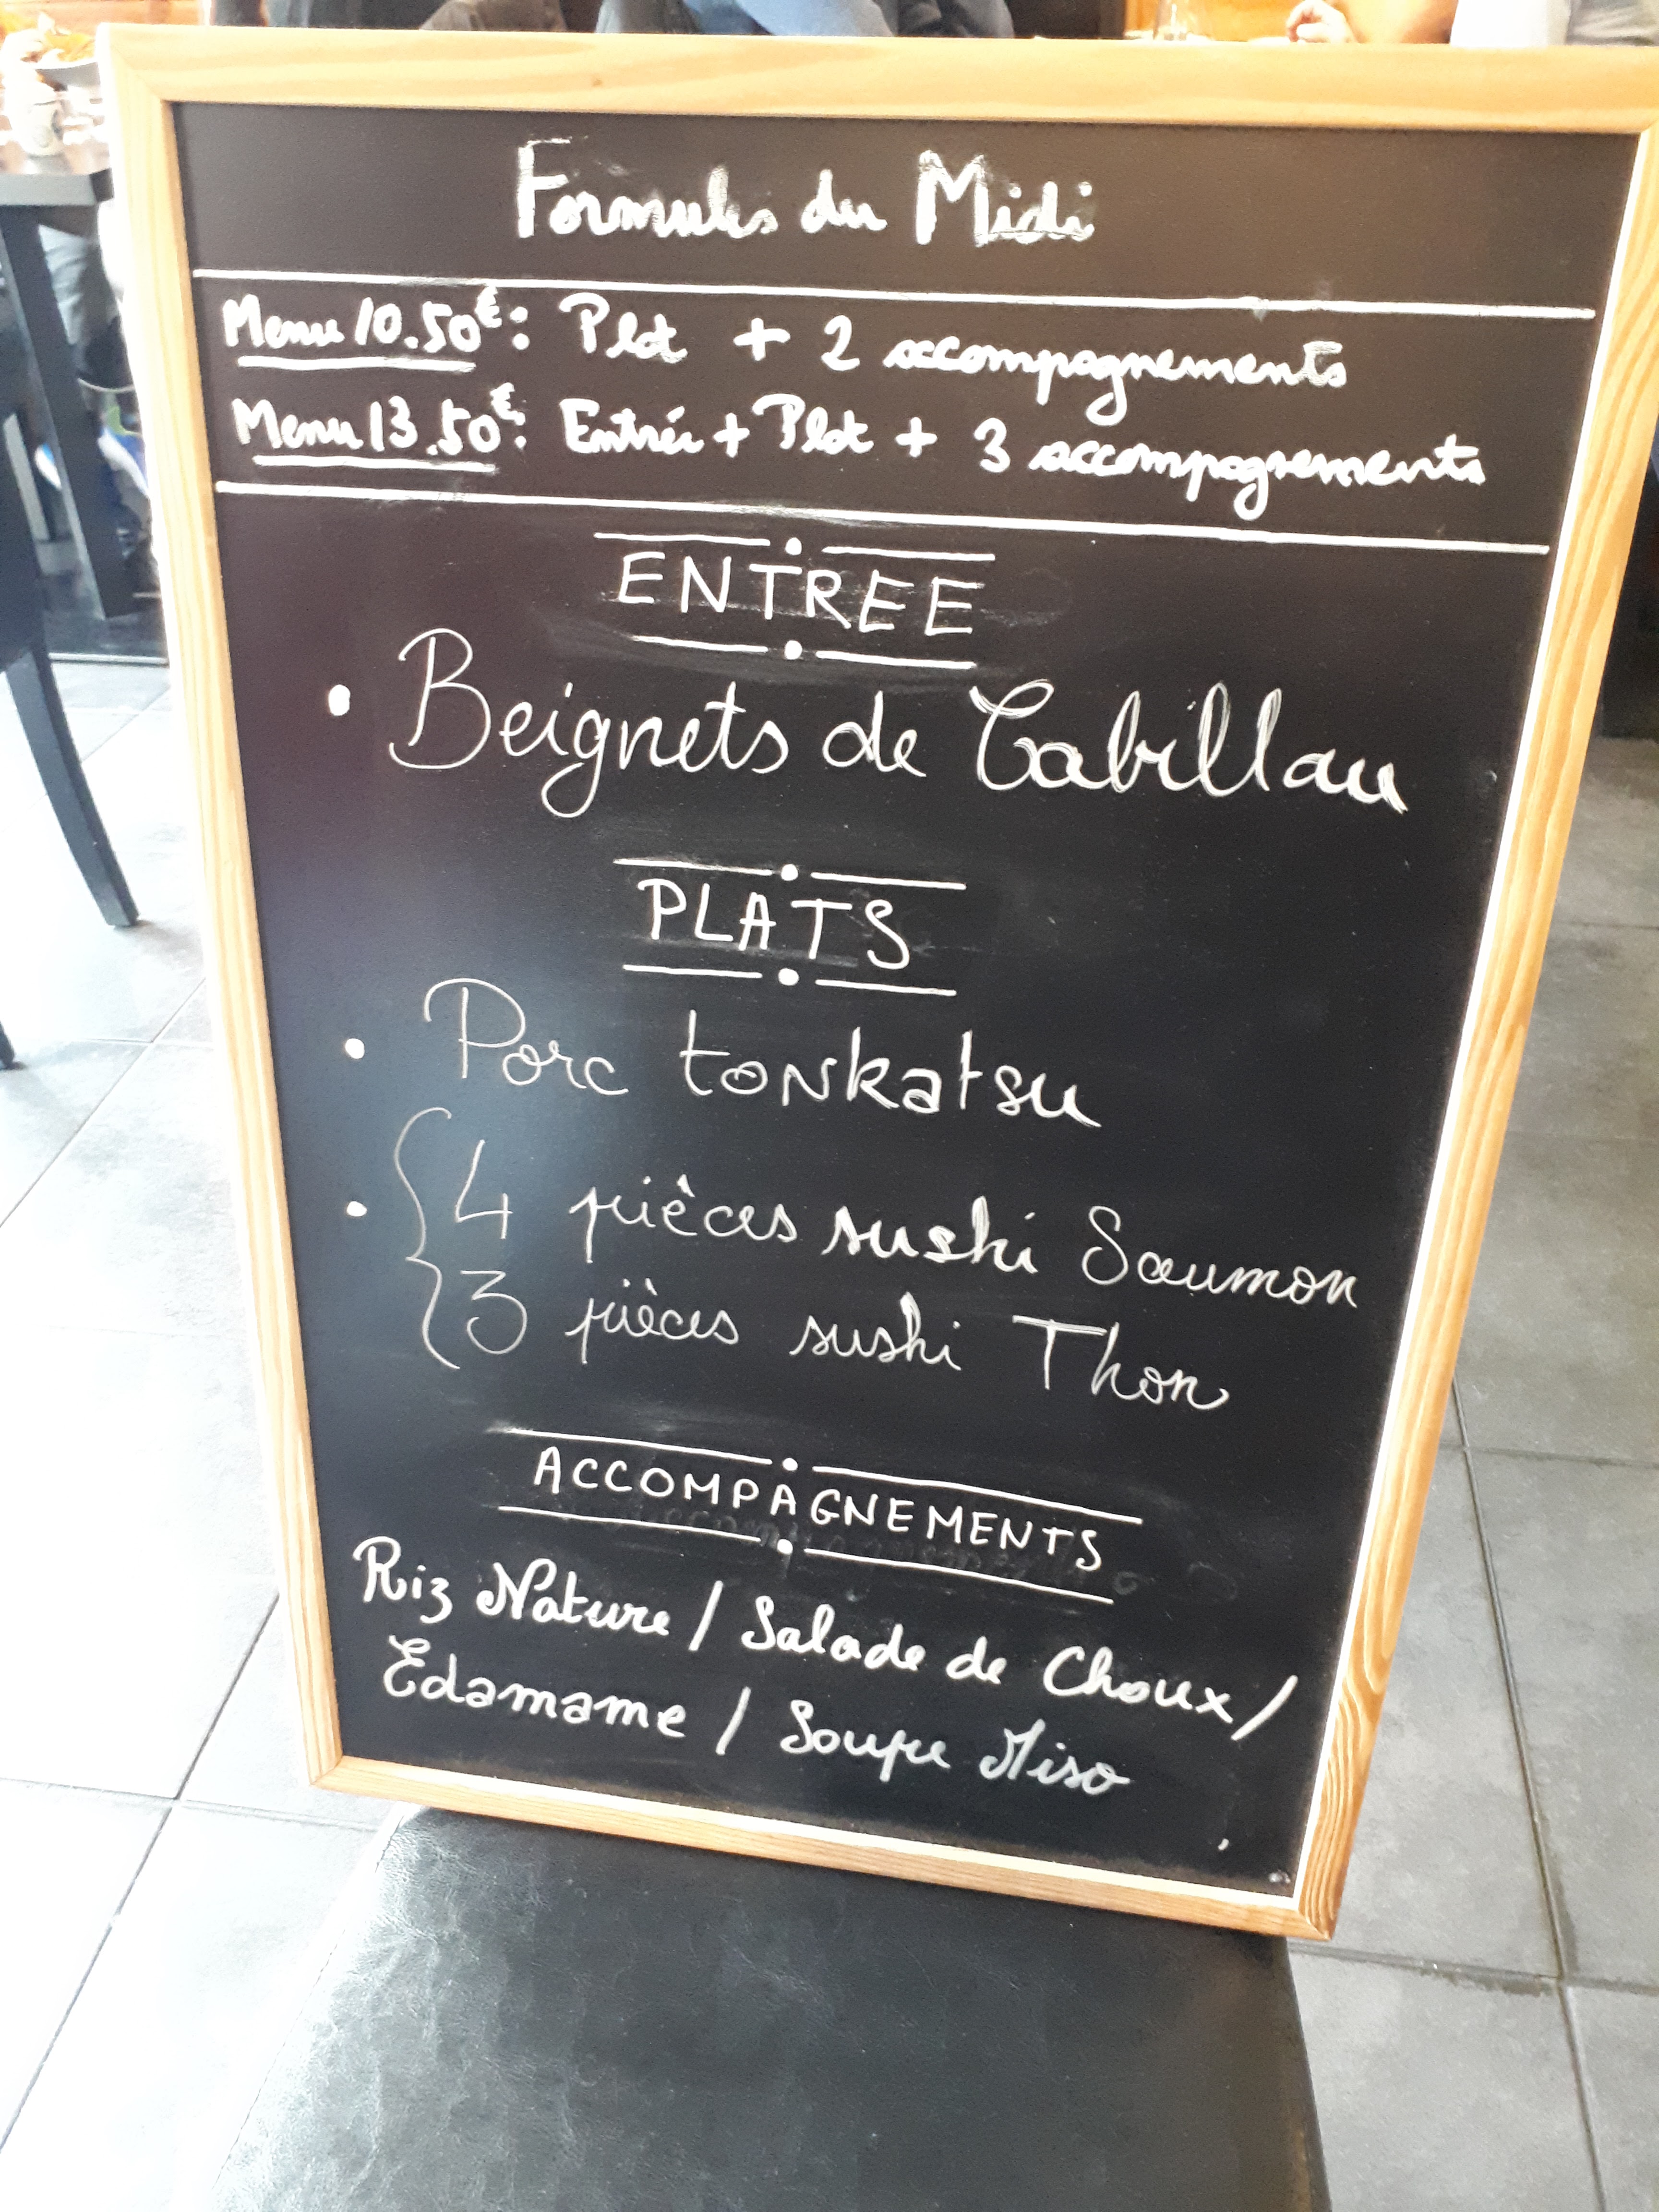 Formules du Midi
Menu 10.50€: Plat + 2 accompagnements
Menu 13.50€: Entrée + Plat + 3 accompagnements
ENTREE
• Beignets de Cabillau
PLATS
• Porc tonkatsu
• { 4 pièces sushi Saumon
3 pièces sushi Thon
ACCOMPAGNEMENTS
Riz Nature / Salade de Choux /
Edamame / Soupe Miso